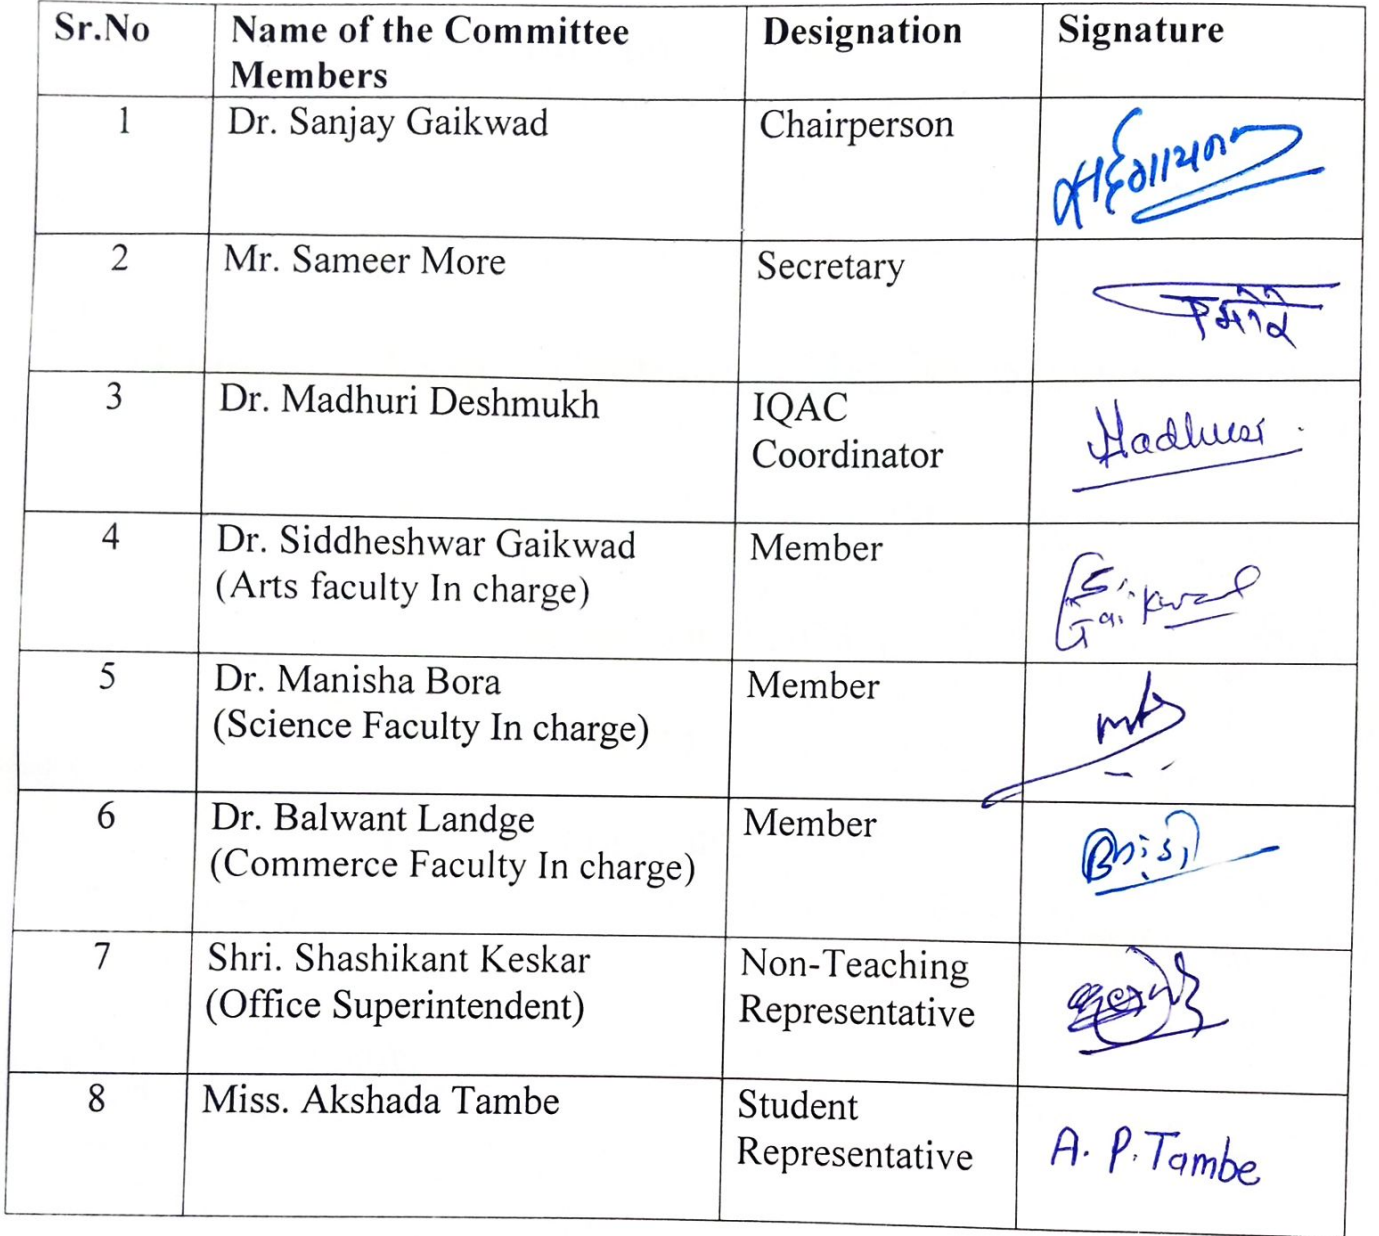 Sr.No Name of the Committee Designation Signature
Members
1 Dr. Sanjay Gaikwad Chairperson
2 Mr. Sameer More Secretary
3 Dr. Madhuri Deshmukh IQAC
Coordinator Madhuri
4 Dr. Siddheshwar Gaikwad Member
(Arts faculty In charge) Gaikwad
5 Dr. Manisha Bora Member
(Science Faculty In charge)
6 Dr. Balwant Landge Member
(Commerce Faculty In charge)
7 Shri. Shashikant Keskar Non-Teaching
(Office Superintendent) Representative
8 Miss. Akshada Tambe Student
Representative A. P. Tambe